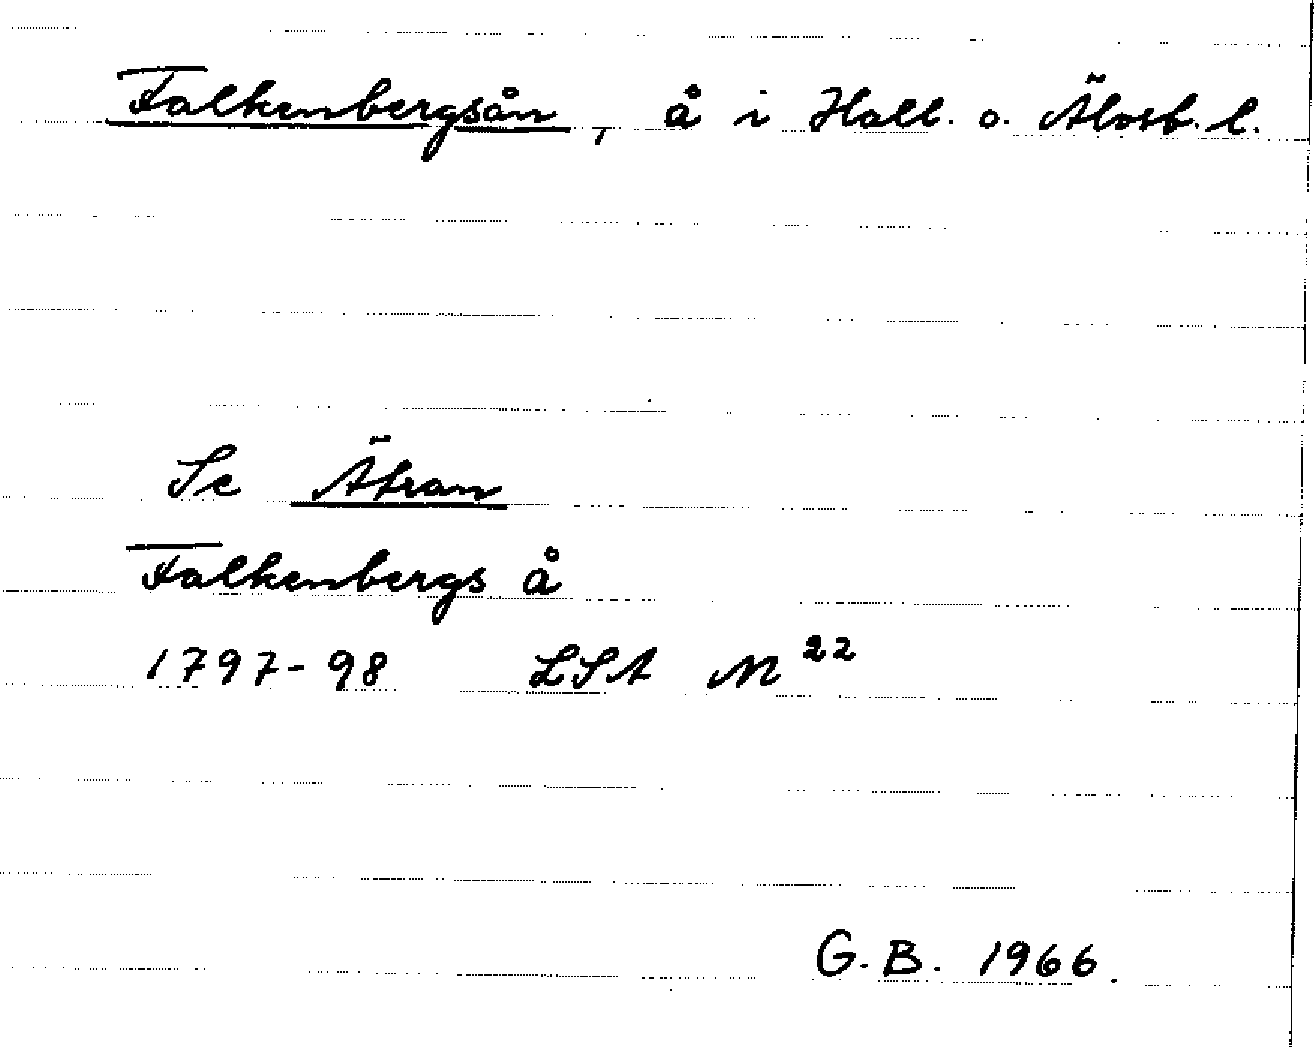 Falkenbergsån, å i Hall. o. Älvsb. l.
Se Ätran
Falkenbergs å
1797-98 LSA M²²
G.B. 1966.